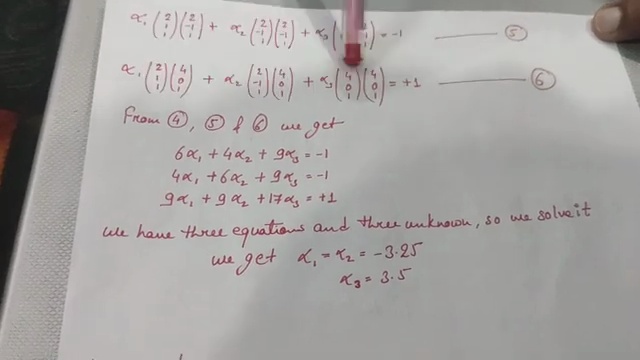 α₁ (2 1 1) (2 -1 1) + α₂ (2 -1 1) (2 -1 1) + α₃ ( 1 = -1 ⑤
α₁ (2 1 1) (4 0 1) + α₂ (2 -1 1) (4 0 1) + α₃ (4 0 1) (4 0 1) = +1 ⑥
From ④, ⑤ & ⑥ we get
6α₁ + 4α₂ + 9α₃ = -1
4α₁ + 6α₂ + 9α₃ = -1
9α₁ + 9α₂ + 17α₃ = +1
we have three equations and three unknown, so we solve it
we get α₁ = α₂ = -3.25
α₃ = 3.5